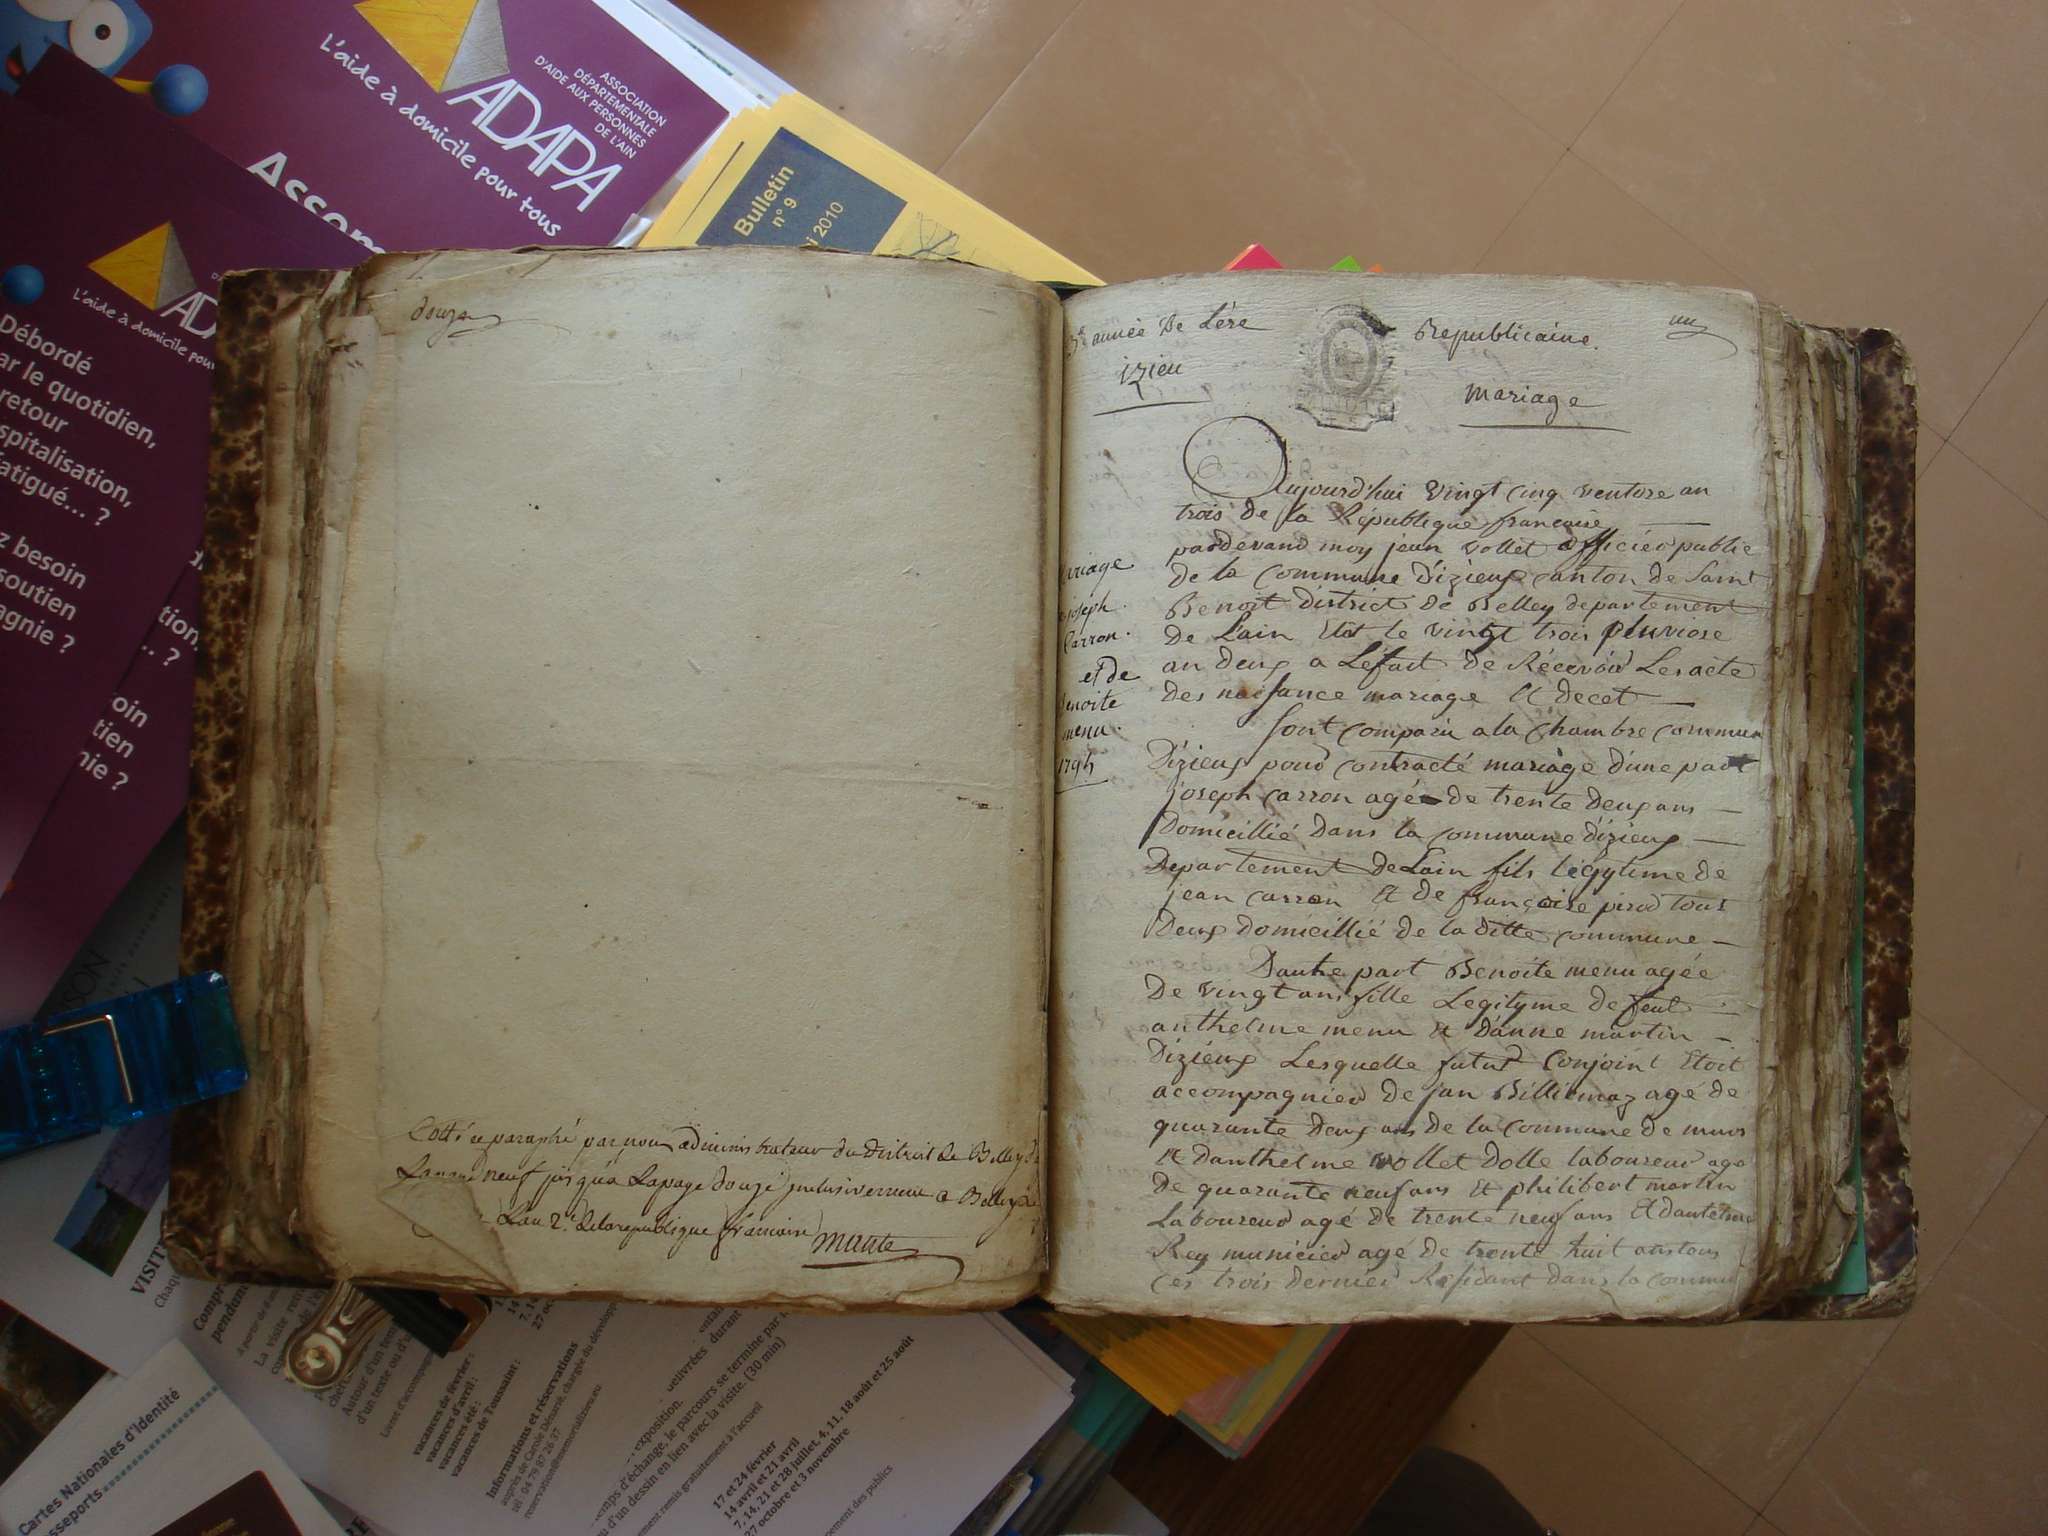 ASSOCIATION
DÉPARTEMENTALE
D'AIDE AUX PERSONNES
DE L'AIN
ADAPA
L'aide à domicile pour tous
Assom
Bulletin
n° 9
2010
L'aide à domicile pour
Débordé
ar le quotidien,
retour
spitalisation,
fatigué... ?
z besoin
soutien
agnie ?
tion,
.. ?
oin
tien
nie ?
douze
Cotté et paraphé par nous administrateur du District de Belley
neuf jusqu'a Lapage douze inclusivement a Belley
Lan 2e de la republique francaise
3e année De Lére
Republicaine.
un
izieu
Mariage
ariage
joseph
Carron.
et de
enoite
menu.
1795
Aujourd'hui vingt cinq ventose an
trois de la République francaise
pardevand moy jean vollet officier public
de la Commune D'izieux canton de Saint
Benoit District de Belley departement
De L'ain Elat le vingt trois pluviose
an deux a Lefait de Récevoir Les acte
Des naissance mariage et decet
Sont comparu a la Chambre commun
D'izieux pour contracté mariàge d'une part
joseph Carron agé de trente deux ans
Domicillié dans la commune d'izieux
Departement de Lain fils légytime de
jean carron et de françoise pirod tous
Deux domicillié de la ditte commune
Dautre part Benoite menu agée
De vingt ans fille Legityme de feut
anthelme menu et d'anne martin
D'izieux Lesquelle futur Conjoint Etoit
accompagnier de jan Billiemaz agé de
quarante deux ans de la commune de murs
et danthelme vollet dolle laboureur agé
De quarante neuf ans et philibert martin
Laboureur agé de trente neuf ans Et dantelme
Rey municier agé de trente huit ans tous
Ces trois dernier Résidant dans la commu
VISIT
Chaq
La visite
Autour d'un
d'un texte ou d'u
vacances de février :
vacances d'avril :
vacances été :
vacances de Toussaint :
Informations et réservations
auprès de Carole Désarié, chargée du dévelop
tél 04 79 87 26 37
reservation@memorializieu.eu
exposition.
durant
emps d'échange, le parcours se termine par l
u d'un dessin en lien avec la visite. (30 min)
ement remis gratuitement à l'accueil
17 et 24 février
14 avril et 21 avril
7, 14, 21 et 28 juillet, 4, 11, 18 août et 25 août
27 octobre et 3 novembre
pement des publics
Cartes Nationales d'Identité
sseports